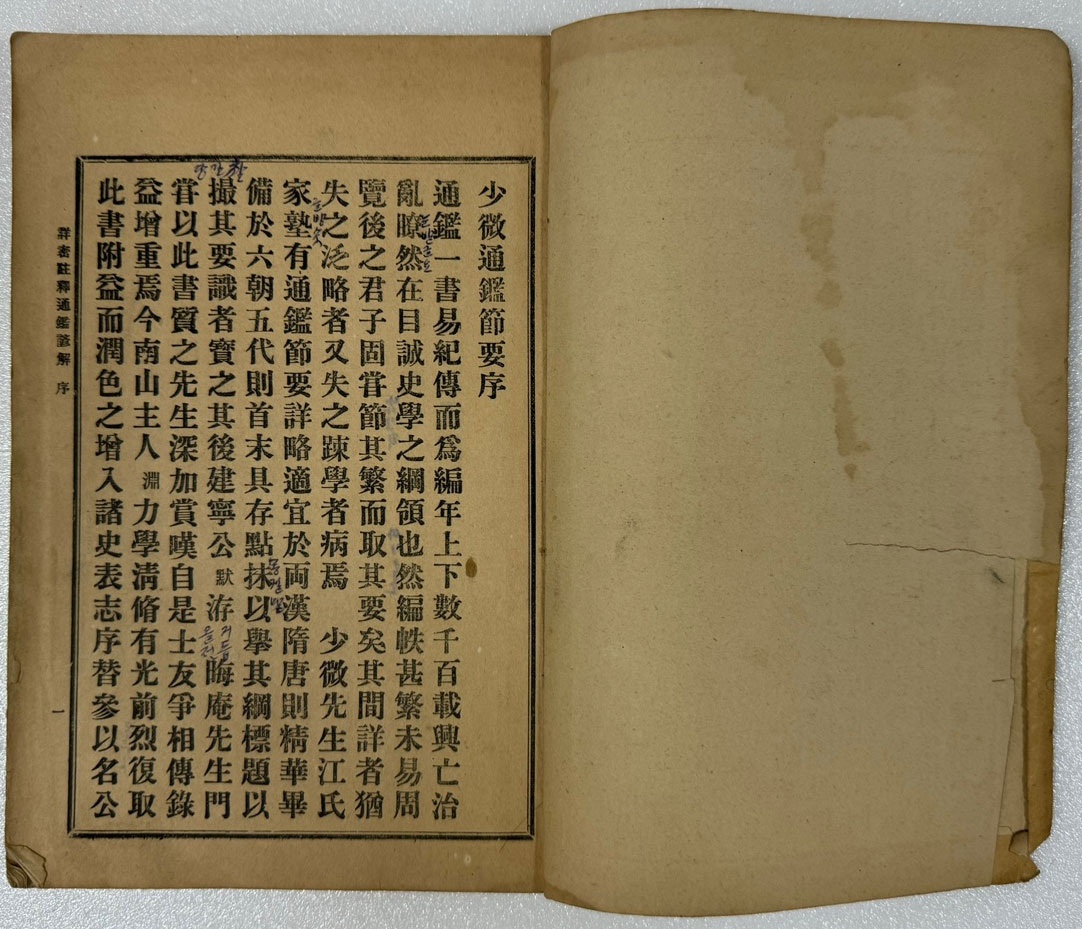 少微通鑑節要序
通鑑一書易紀傳而爲編年上下數千百載興亡治
亂瞭然在目誠史學之綱領也然編帙甚繁未易周
覽後之君子固甞節其繁而取其要矣其間詳者猶
失之泛略者又失之踈學者病焉 少微先生江氏
家塾有通鑑節要詳略適宜於両漢隋唐則精華畢
備於六朝五代則首末具存點抹以擧其綱標題以
撮其要識者寶之其後建寧公默洊晦庵先生門
甞以此書質之先生深加賞嘆自是士友爭相傳錄
益增重焉今南山主人淵力學淸脩有光前烈復取
此書附益而潤色之增入諸史表志序替參以名公
詳密註釋通鑑諺解 序
一